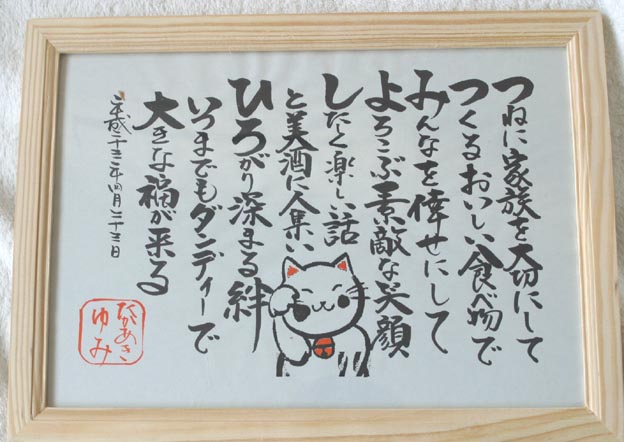 つねに家族を大切にして
つくるおいしい食べ物で
みんなを倖せにして
よろこぶ素敵な笑顔
したく楽しい話
と美酒に人集い
ひろがり深まる絆
いつまでもダンディーで
大きな福が来る
平成二十三年四月二十三日
たかあき
ゆみ